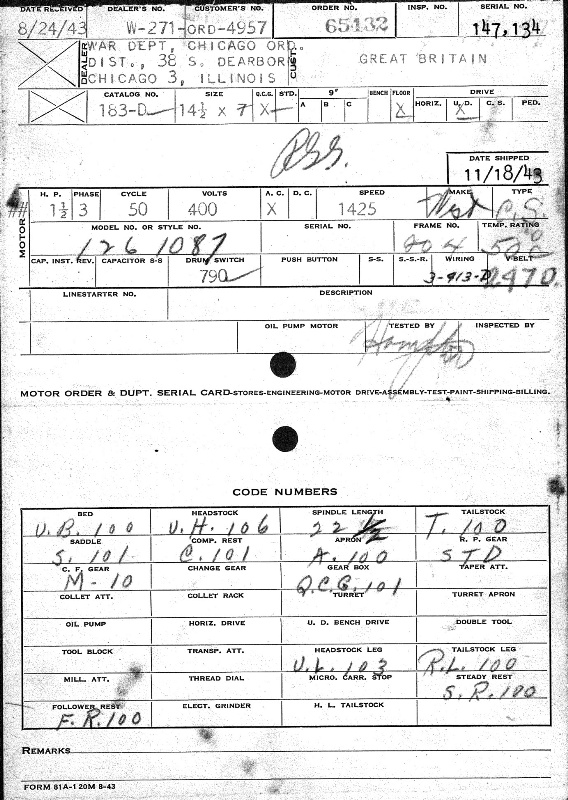 DATE RECEIVED DEALER'S NO. CUSTOMER'S NO. ORDER NO. INSP. NO. SERIAL NO.
8/24/43 W-271-ORD-4957 65132 147,134
DEALER WAR DEPT, CHICAGO ORD. CUST.
DIST., 38 S. DEARBORN GREAT BRITAIN
CHICAGO 3, ILLINOIS
CATALOG NO. SIZE Q.C.G. STD. 9" BENCH FLOOR DRIVE
A B C HORIZ. U.D. C.S. PED.
183-D 14½ x 7 X X X
DATE SHIPPED
11/18/43
MOTOR H. P. PHASE CYCLE VOLTS A. C. D. C. SPEED MAKE TYPE
1½ 3 50 400 X 1425 West C.S.
MODEL NO. OR STYLE NO. SERIAL NO. FRAME NO. TEMP. RATING
1261087 204 50°
CAP. INST. REV. CAPACITOR 8-8 DRUM SWITCH PUSH BUTTON S-S. S.-S.-R. WIRING V-BELT
790 3-913-D 2470
LINESTARTER NO. DESCRIPTION
OIL PUMP MOTOR TESTED BY INSPECTED BY
MOTOR ORDER & DUPT. SERIAL CARD-STORES-ENGINEERING-MOTOR DRIVE-ASSEMBLY-TEST-PAINT-SHIPPING-BILLING.
CODE NUMBERS
BED HEADSTOCK SPINDLE LENGTH TAILSTOCK
U.B. 100 U.H. 106 22 ½ T. 100
SADDLE COMP. REST APRON R. P. GEAR
S. 101 C. 101 A. 100 STD
C. F. GEAR CHANGE GEAR GEAR BOX TAPER ATT.
M-10 Q.C.G. 101
COLLET ATT. COLLET RACK TURRET TURRET APRON
OIL PUMP HORIZ. DRIVE U. D. BENCH DRIVE DOUBLE TOOL
TOOL BLOCK TRANSP. ATT. HEADSTOCK LEG TAILSTOCK LEG
U.L. 103 R.L. 100
MILL. ATT. THREAD DIAL MICRO. CARR. STOP STEADY REST
S.R. 100
FOLLOWER REST ELECT. GRINDER H. L. TAILSTOCK
F.R. 100
REMARKS
FORM 81A-1 20M 8-43